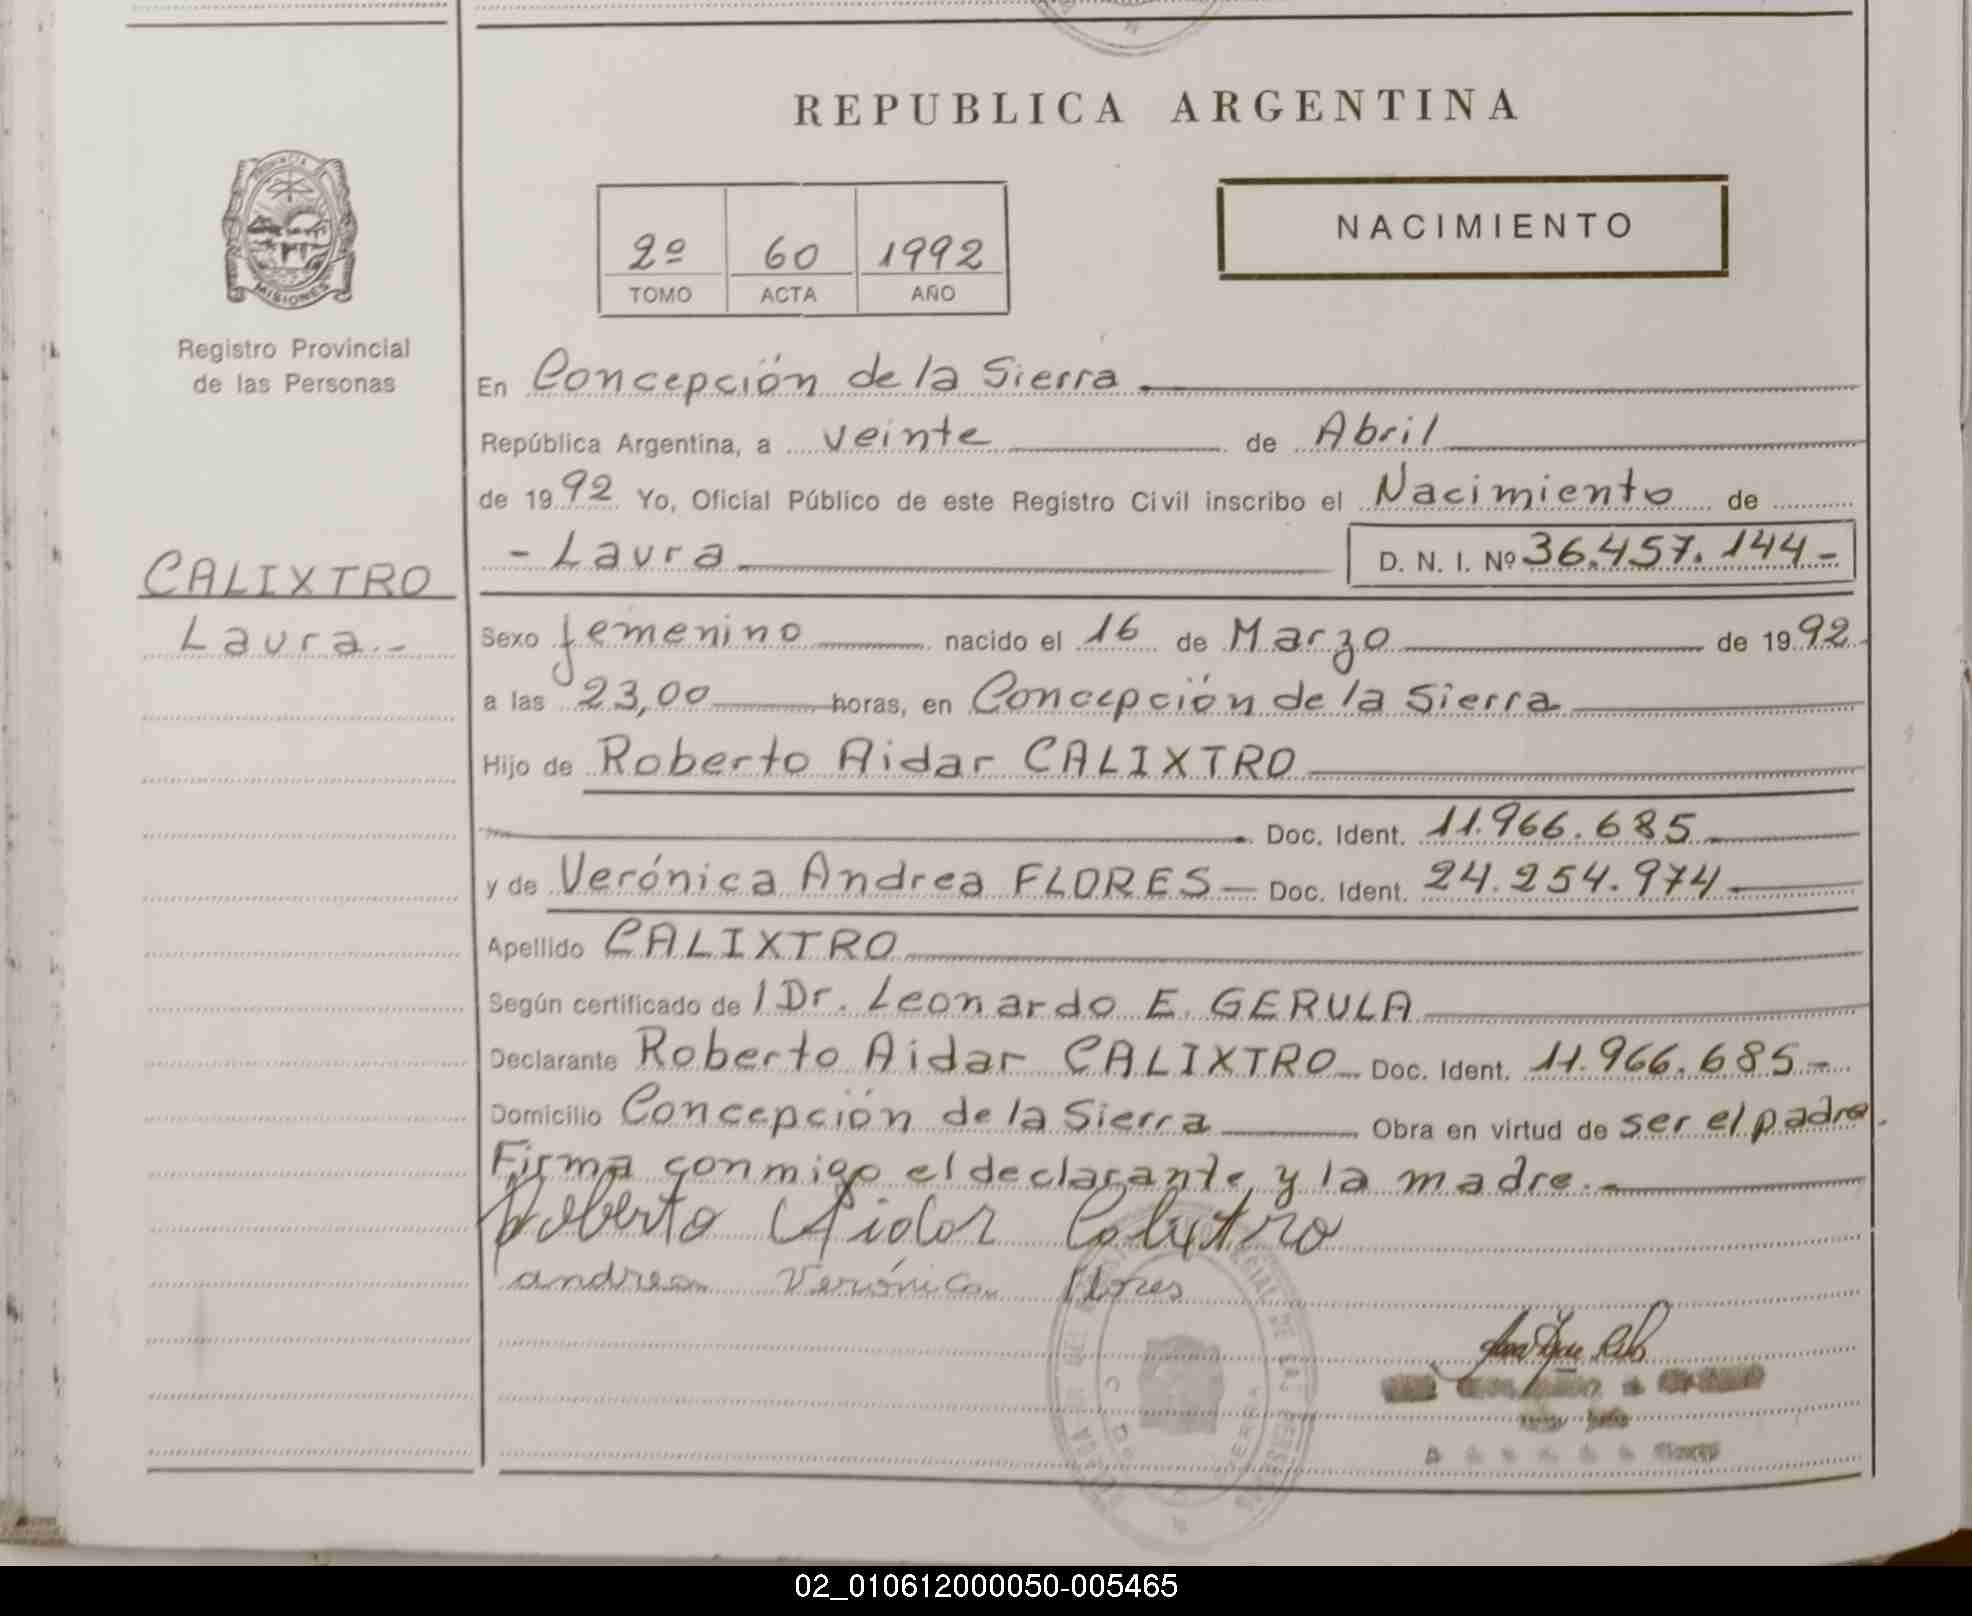 REPUBLICA ARGENTINA
NACIMIENTO
2º 60 1992
TOMO ACTA AÑO
MISIONES
Registro Provincial
de las Personas
CALIXTRO
Laura.-
En Concepción de la Sierra
República Argentina, a veinte de Abril
de 1992 Yo, Oficial Público de este Registro Civil inscribo el Nacimiento de
- Laura D. N. I. Nº 36.457.144-
Sexo femenino nacido el 16 de Marzo de 1992
a las 23,00 horas, en Concepción de la Sierra
Hijo de Roberto Aidar CALIXTRO
Doc. Ident. 11.966.685
y de Verónica Andrea FLORES Doc. Ident. 24.254.974
Apellido CALIXTRO
Según certificado de l Dr. Leonardo E. GERULA
Declarante Roberto Aidar CALIXTRO Doc. Ident. 11.966.685-
Domicilio Concepción de la Sierra Obra en virtud de ser el padre.
Firma conmigo el declarante y la madre.-
Roberto Aidar Calixtro
andrea Verónica Flores
02_010612000050-005465